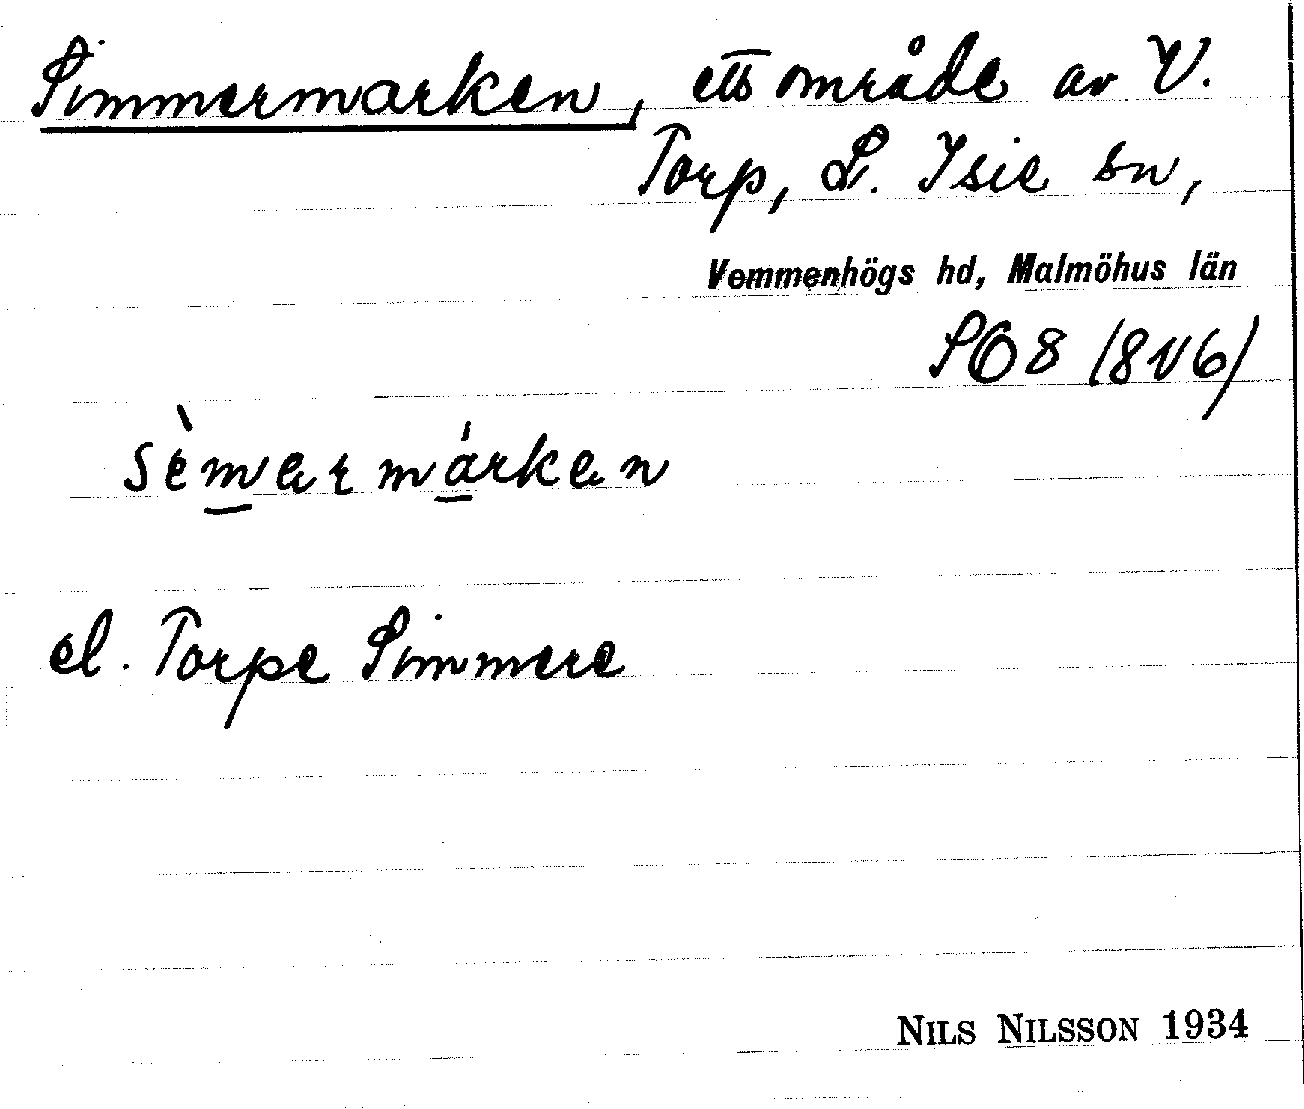 Simmermarken, ett område av V.
Torp, L. Isie sn,
Vemmenhögs hd, Malmöhus län
SO 8 (8V6)
sèmermárken
el. Torpe Simmere
NILS NILSSON 1934